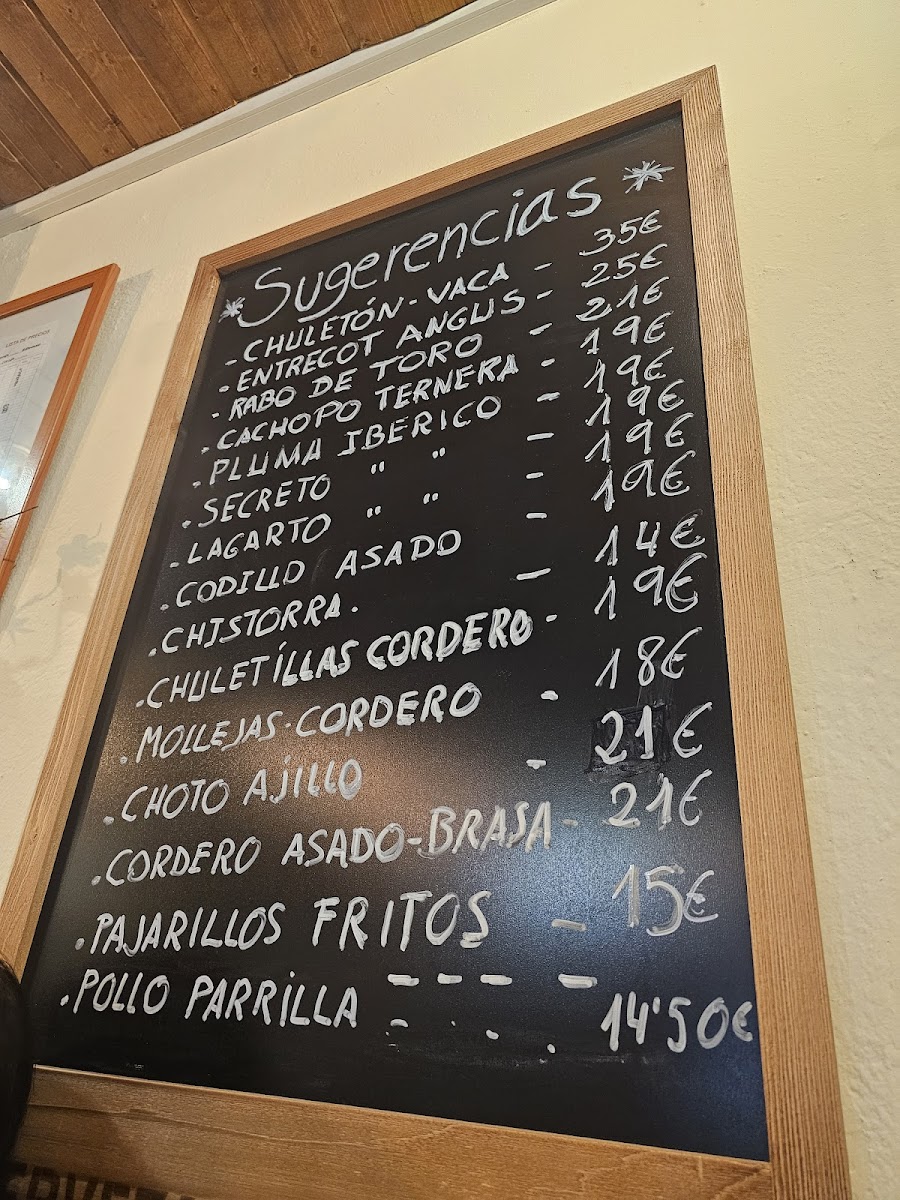 * Sugerencias *
- CHULETÓN - VACA - 35€
- ENTRECOT ANGUS - 25€
- RABO DE TORO - 21€
. CACHOPO TERNERA - 19€
. PLUMA IBERICO - 19€
. SECRETO " " - 19€
. LAGARTO " " - 19€
. CODILLO ASADO - 19€
. CHISTORRA. - 14€
. CHULETÍLLAS CORDERO - 19€
. MOLLEJAS - CORDERO - 18€
. CHOTO AJILLO - 21€
. CORDERO ASADO - BRASA - 21€
. PAJARILLOS FRITOS - 15€
. POLLO PARRILLA - - - - 14'50€
LISTA DE PRECIOS